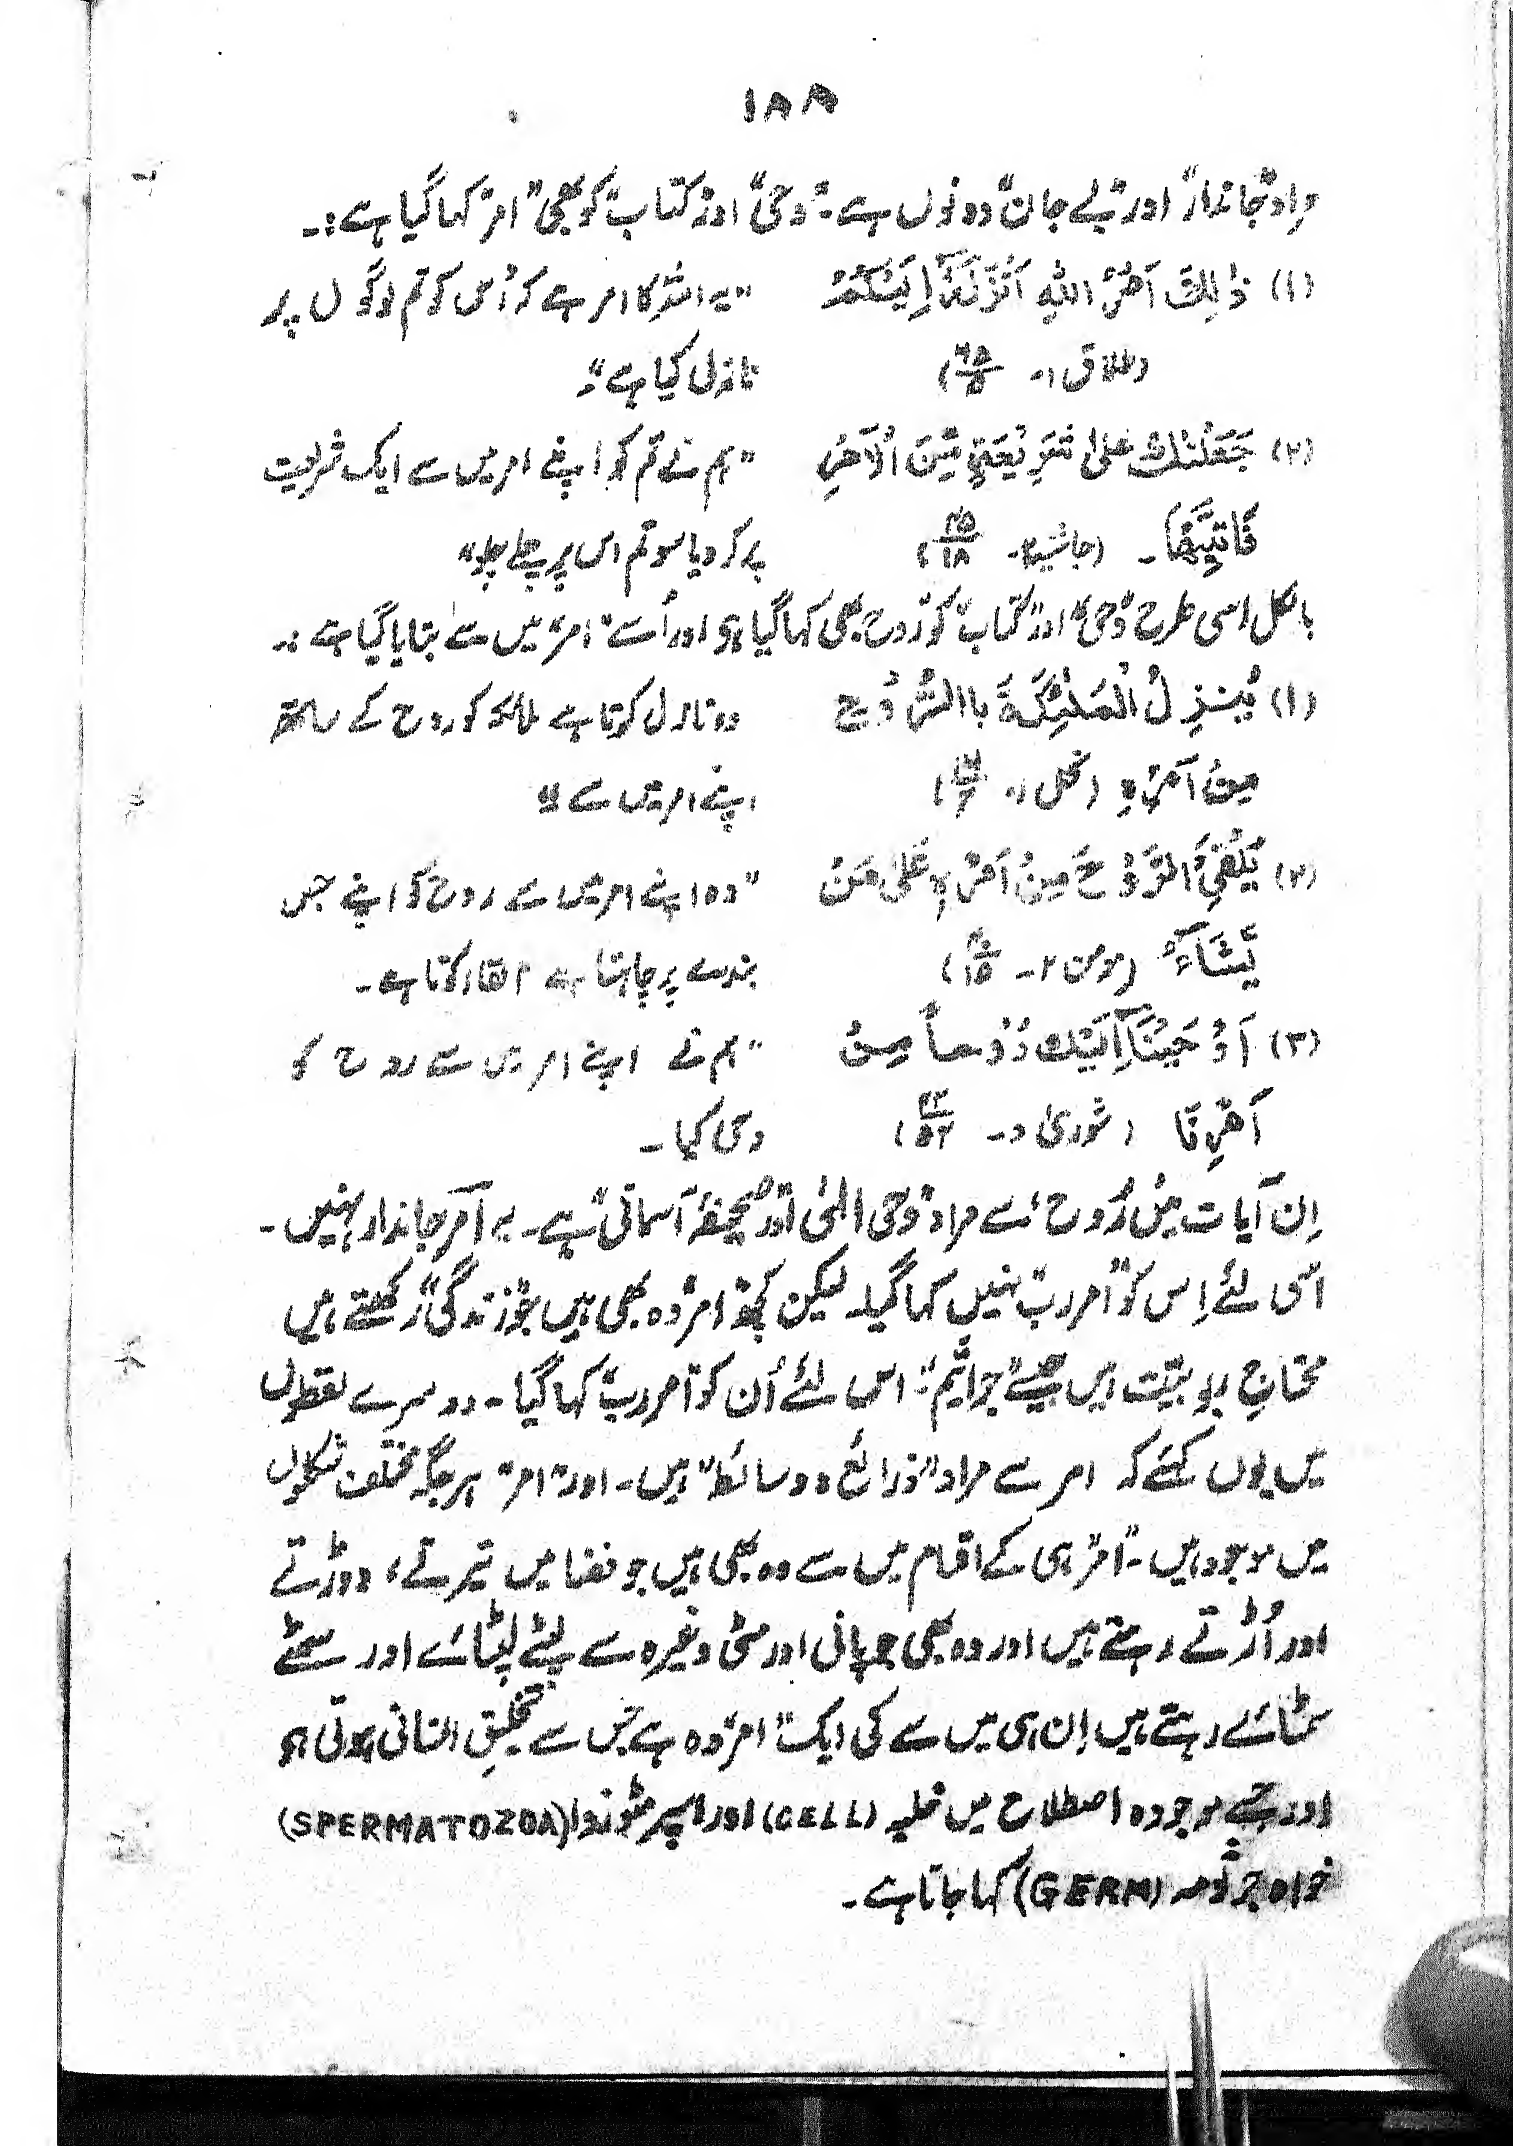 ۱۸۸
مراد "جاندار" اور "بے جان" دونوں ہے۔ "وحی" اور "کتاب" کو بھی "امر" کہا گیا ہے:۔
(۱) ذٰلِكَ اَمْرُ اللّٰهِ اَنْزَلَهٗٓ اِلَيْكُمْ "یہ اللہ کا امر ہے کہ اُس کو تم لوگوں پر
(طلاق ۱۔ ۶۵/۵) نازل کیا ہے"۔
(۲) جَعَلْنٰكَ عَلٰى شَرِيْعَةٍ مِّنَ الْاَمْرِ "ہم نے تم کو اپنے امر میں سے ایک شریعت
فَاتَّبِعْهَا۔ (جاثیہ ۲۔ ۴۵/۱۸) پر کر دیا سو تم اس پر چلے چلو"
بالکل اسی طرح "وحی" اور "کتاب" کو "روح" بھی کہا گیا ہے اور اُسے "امر" میں سے بتایا گیا ہے:۔
(۱) يُنَزِلُ الْمَلٰٓئِكَةَ باالرُّوْح وہ نازل کرتا ہے ملائکہ کو روح کے ساتھ
مِنْ اَمْرِهٖ (نحل ۱۔ ۱۶/۲) اپنے امر میں سے"
(۲) يُلْقِي الرُّوْحَ مِنْ اَمْرِهٖ عَلٰى مَنْ "وہ اپنے امر میں سے روح کو اپنے جس
يَّشَآءُ (مومن ۲۔ ۴۰/۱۵) بندے پر چاہتا ہے القا کرتا ہے۔
(۳) اَوْحَيْنَآ اِلَيْكَ رُوْحاً مِنْ "ہم نے اپنے امر میں سے روح کو
اَمْرِنَا (شوریٰ ۵۔ ۴۲/۵۲) وحی کیا۔
اِن آیات میں "رُوح" سے مراد "وحی الہٰی" اور "صحیفۂ آسمانی" ہے۔ یہ امر جاندار نہیں۔
اسی لئے اِس کو "امر رب" نہیں کہا گیا۔ لیکن کچھ "امر" وہ بھی ہیں جو "زندگی" رکھتے ہیں
محتاجِ ربوبیّت ہیں جیسے "جراثیم"۔ اس لئے اُن کو "امر رب" کہا گیا۔ دوسرے لفظوں
میں یوں کہئے کہ امر سے مراد "ذرائع و وسائط" ہیں۔ اور "امر" ہر جگہ مختلف شکلوں
میں موجود ہیں۔ "امر" ہی کے اقسام میں سے وہ بھی ہیں جو فضا میں تیرتے، دوڑتے
اور اُڑتے رہتے ہیں اور وہ بھی جو پانی اور مٹی وغیرہ سے لپٹے لپٹائے اور سمٹے
سمٹائے رہتے ہیں اِن ہی میں سے کی ایک "امر" وہ ہے جس سے تخلیقِ انسانی ہوتی ہے
اور جسے موجودہ اصطلاح میں خلیہ (CELL) اور اسپرمٹوزوا (SPERMATOZOA)
خواہ جرثومہ (GERM) کہا جاتا ہے۔